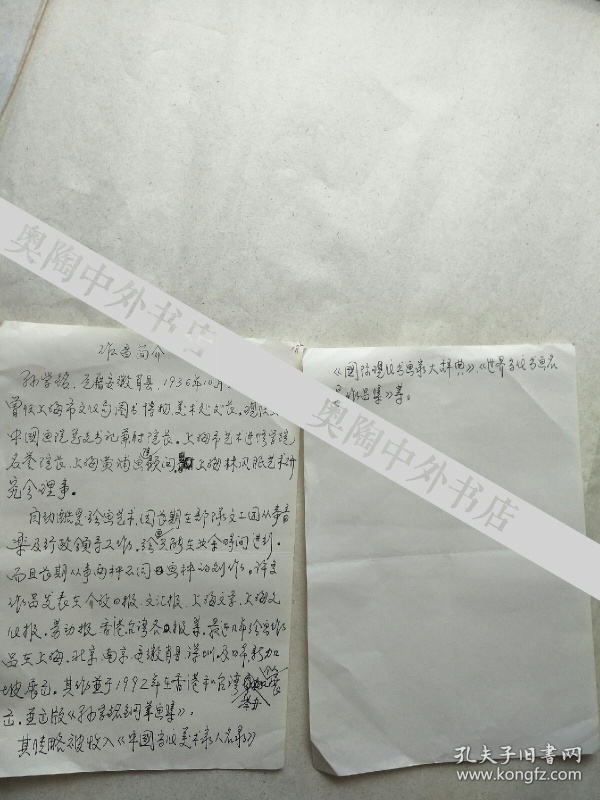 作者简介
孙学铭，安徽省肖县，1936年10月
曾任上海市文化局图书博物美术处处长。现任上
中国画院总支书记兼付院长。上海市艺术进修学院
名誉院长。上海黄浦画院顾问，上海林风眠艺术研
究会理事。
自幼酷爱绘画艺术，因长期在部队文工团从事音
乐及行政领导工作，绘画只能在业余时间进行。
而且长期从事两种不同画种的创作。许多
作品发表在解放日报、文汇报、上海文学、上海文
化报、劳动报、香港台湾各报等。最近几年绘画作
品在上海、北京、南京、安徽肖县、深圳及日本、新加
坡展出。其作并于1992年在香港和台湾举办个展
并出版《孙学铭钢笔画集》。
其传略被收入《中国当代美术家人名录》
《国际现代书画家大辞典》、《世界当代书画名
家作品集》等。
奥陶中外书店
奥陶中外书店
孔夫子旧书网
www.kongfz.com